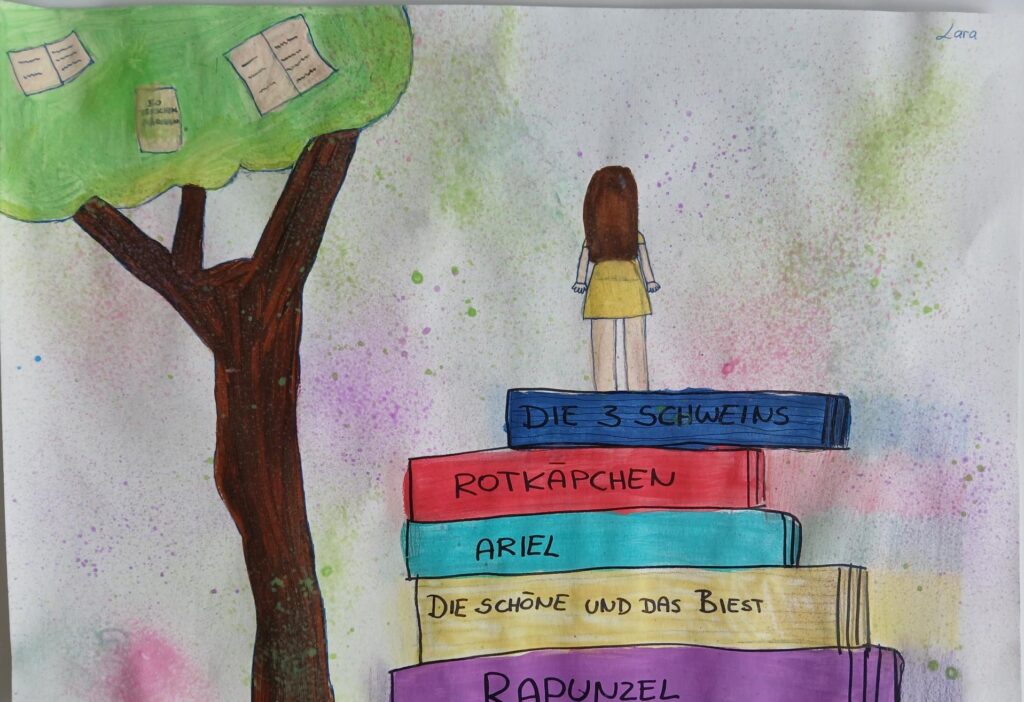 Lara
DIE 3 SCHWEINS
ROTKÄPCHEN
ARIEL
DIE SCHÖNE UND DAS BIEST
RAPUNZEL